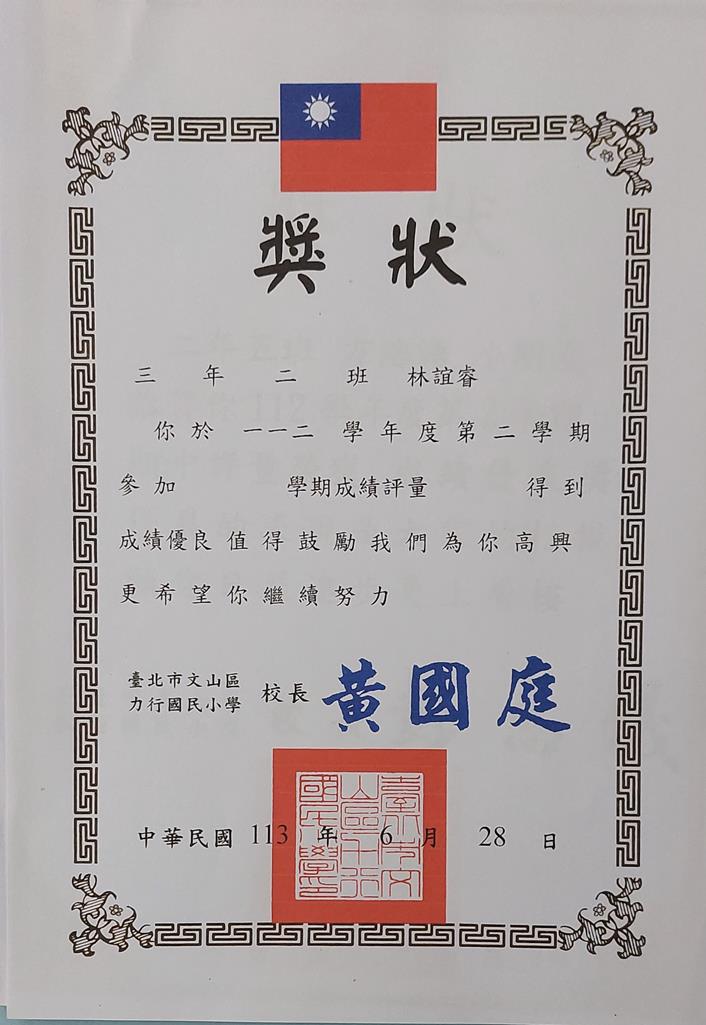 獎狀
三年二班 林誼睿
你於 一一二 學年度第二學期
參加 學期成績評量 得到
成績優良 值得鼓勵我們為你高興
更希望你繼續努力
臺北市文山區
力行國民小學 校長 黃國庭
中華民國 113 年 6 月 28 日